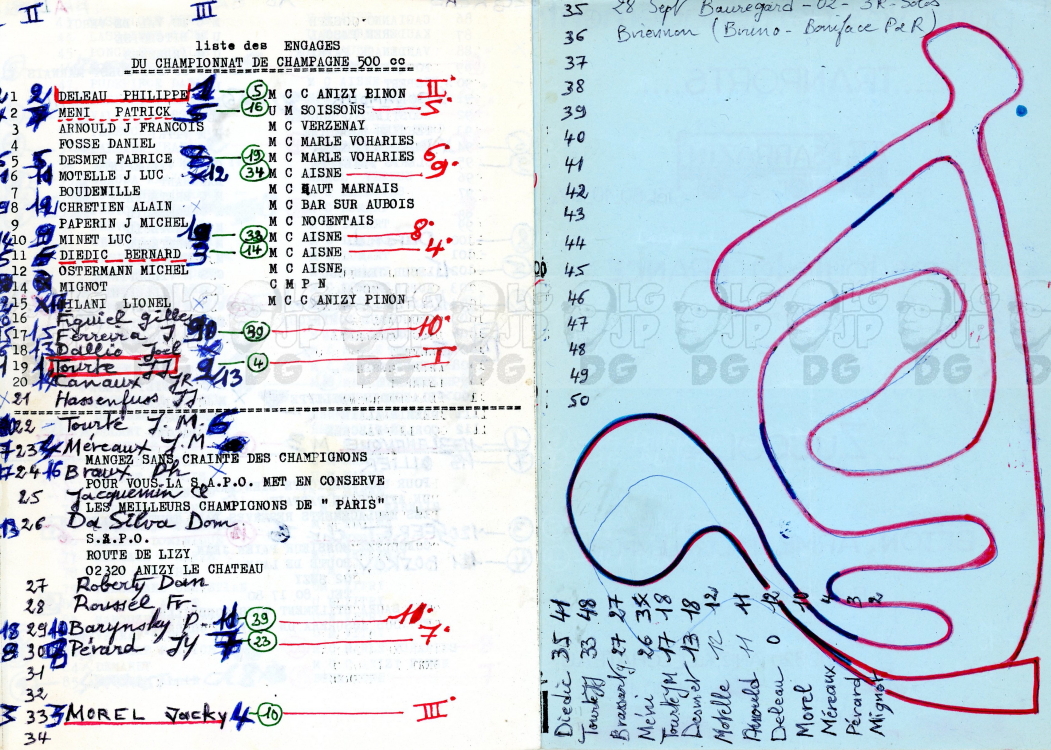 II III
liste des ENGAGES
DU CHAMPIONNAT DE CHAMPAGNE 500 cc
1 2 DELEAU PHILIPPE 1 5 M C C ANIZY BINON II
2 MENI PATRICK 5 16 U M SOISSONS 5
3 ARNOULD J FRANCOIS M C VERZENAY
4 FOSSE DANIEL M C MARLE VOHARIES
5 5 DESMET FABRICE 19 M C MARLE VOHARIES 6
6 MOTELLE J LUC 12 34 M C AISNE 9
7 BOUDEVILLE M C HAUT MARNAIS
8 12 CHRETIEN ALAIN x M C BAR SUR AUBOIS
9 PAPERIN J MICHEL M C NOGENTAIS
10 MINET LUC 38 M C AISNE 8
11 DIEDIC BERNARD 3 14 M C AISNE 4
12 OSTERMANN MICHEL M C AISNE
14 MIGNOT C M P N
15 LIONEL x M C C ANIZY PINON
16 Figuiel Gilles
17 15 Ferreira J 39 10
18 13 Dallio Joël
19 Tourte JJ 4 I
20 Canaux JR 13
x 21 Hassenfuss JJ
22 Tourte J. M. 6
23 Méreaux J. M
MANGEZ SANS CRAINTE DES CHAMPIGNONS
24 16 Braux Ph x
POUR VOUS LA S.A.P.O. MET EN CONSERVE
25 Jacquemin
LES MEILLEURS CHAMPIGNONS DE " PARIS"
13 26 Da Silva Dom
S.A.P.O.
ROUTE DE LIZY
02320 ANIZY LE CHATEAU
27 Roberty Dom
28 Roussel Fr.
18 29 10 Barynsky P 11 39 11
8 30 Pérard JY 7 23 7
31
32
3 33 3 MOREL Jacky 4 10 III
34
35 28 Sept Bauregard - 02 - 3R - Solos
36 Briennon (Bruno - Boniface P & R)
37
38
39
40
41
42
43
44
45
46
47
48
49
50
LG JP DG
Diedic 35 41
Tourte JJ 33 48
Brassart g. 27 27
Méni 26 38
Tourte JM 17 18
Desmet 13 18
Motelle 12 12
Arnould 11 11
Deleau 0 12
Morel 10
Méreaux 4
Pérard 3
Mignot 2